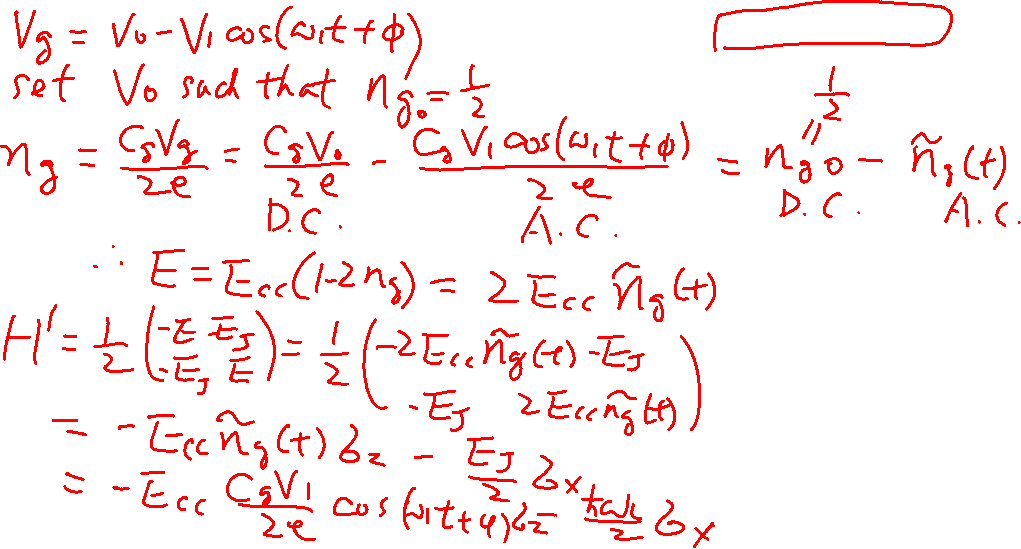 Vg = V₀ - V₁ cos(ω₁t + φ)
set V₀ such that n_g₀ = 1/2
n_g = CgVg/2e = CgV₀/2e - CgV₁cos(ω₁t+φ)/2e = n_g0 - ñ_g(t)
1/2 =
D.C. A.C. D.C. A.C.
∴ E = Ecc(1-2n_g) = 2Ecc ñ_g(t)
H' = 1/2 (-E -E_J; -E_J E) = 1/2 (-2Ecc ñ_g(t) -E_J; -E_J 2Ecc ñ_g(t))
= -Ecc ñ_g(t) σ_z - E_J/2 σ_x
= -Ecc CgV₁/2e cos(ω₁t+φ)σ_z - ħω₁/2 σ_x